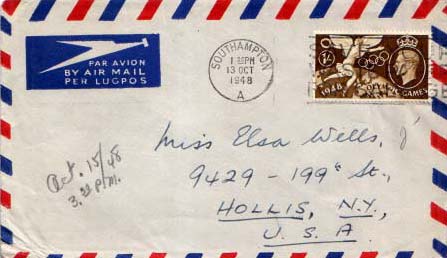 PAR AVION
BY AIR MAIL
PER LUGPOS
SOUTHAMPTON
13 OCT
1948
A
1/-
1948
GAMES
Oct. 15/48
Miss Elsa Wells,
9429 - 199th St.,
HOLLIS, N.Y.,
U.S.A.